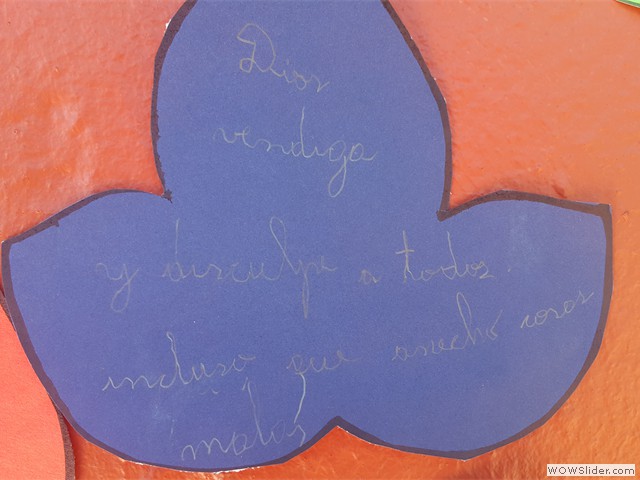 Dios
vendiga
y disculpa a todos.
incluso que anechó cosas
malas
WOWSlider.com